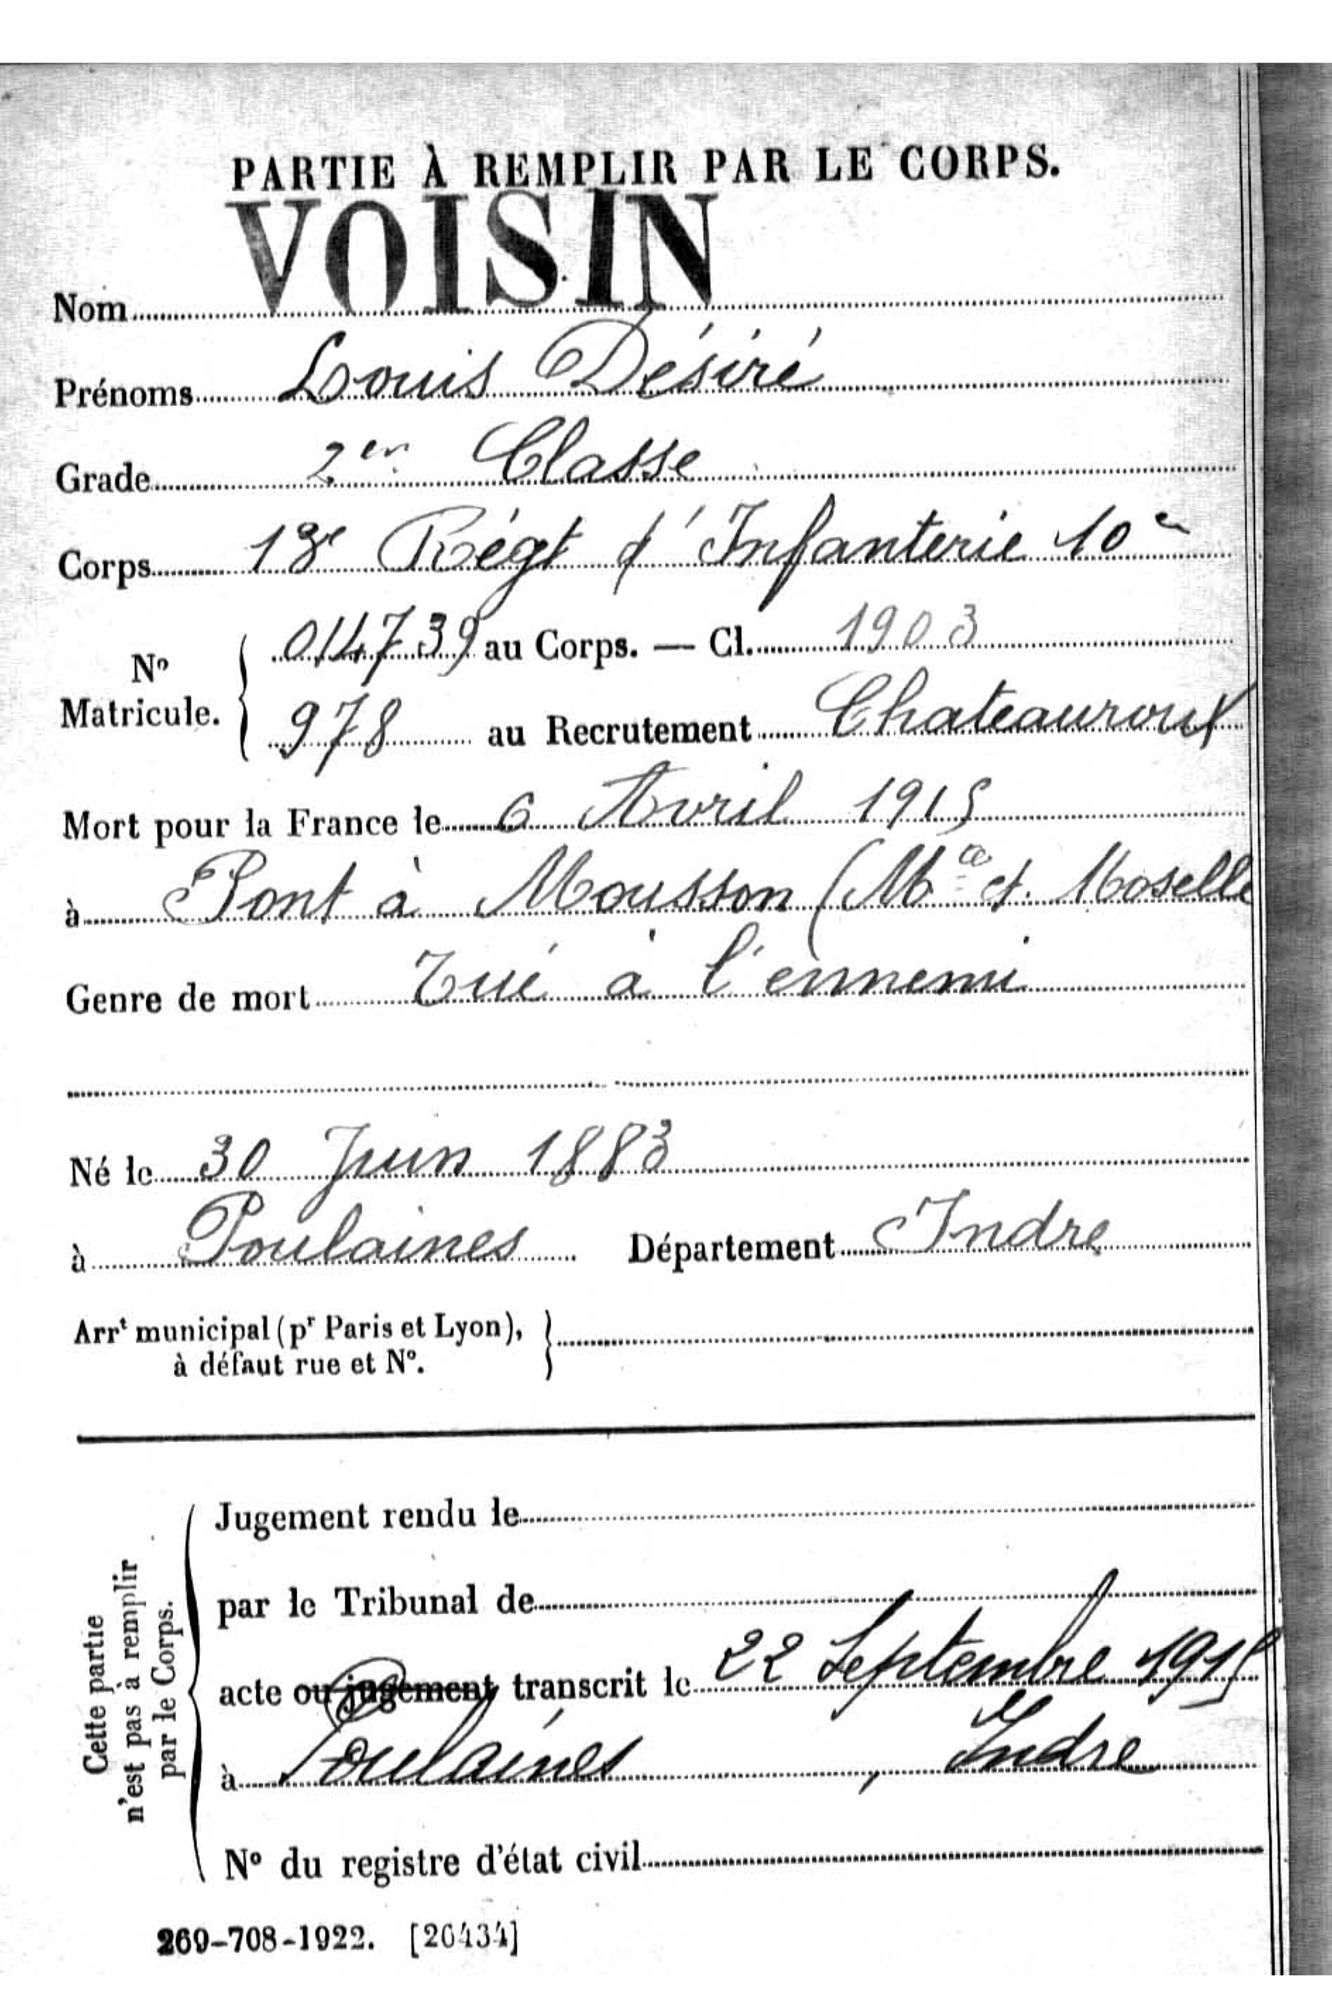 PARTIE À REMPLIR PAR LE CORPS.
Nom VOISIN
Prénoms Louis Désiré
Grade 2er Classe
Corps 13e Régt d'Infanterie 10e
No Matricule. 014739 au Corps. — Cl. 1903
978 au Recrutement Chateauroux
Mort pour la France le 6 Avril 1915
à Pont à Mousson (Mthe et Moselle
Genre de mort Tué à l'ennemi
Né le 30 Juin 1883
à Poulaines Département Indre
Arrt municipal (pr Paris et Lyon),
à défaut rue et No.
Cette partie
n'est pas à remplir
par le Corps.
Jugement rendu le
par le Tribunal de
acte ou jugement transcrit le 22 Septembre 1915
à Poulaines, Indre
No du registre d'état civil
269-708-1922. [26434]